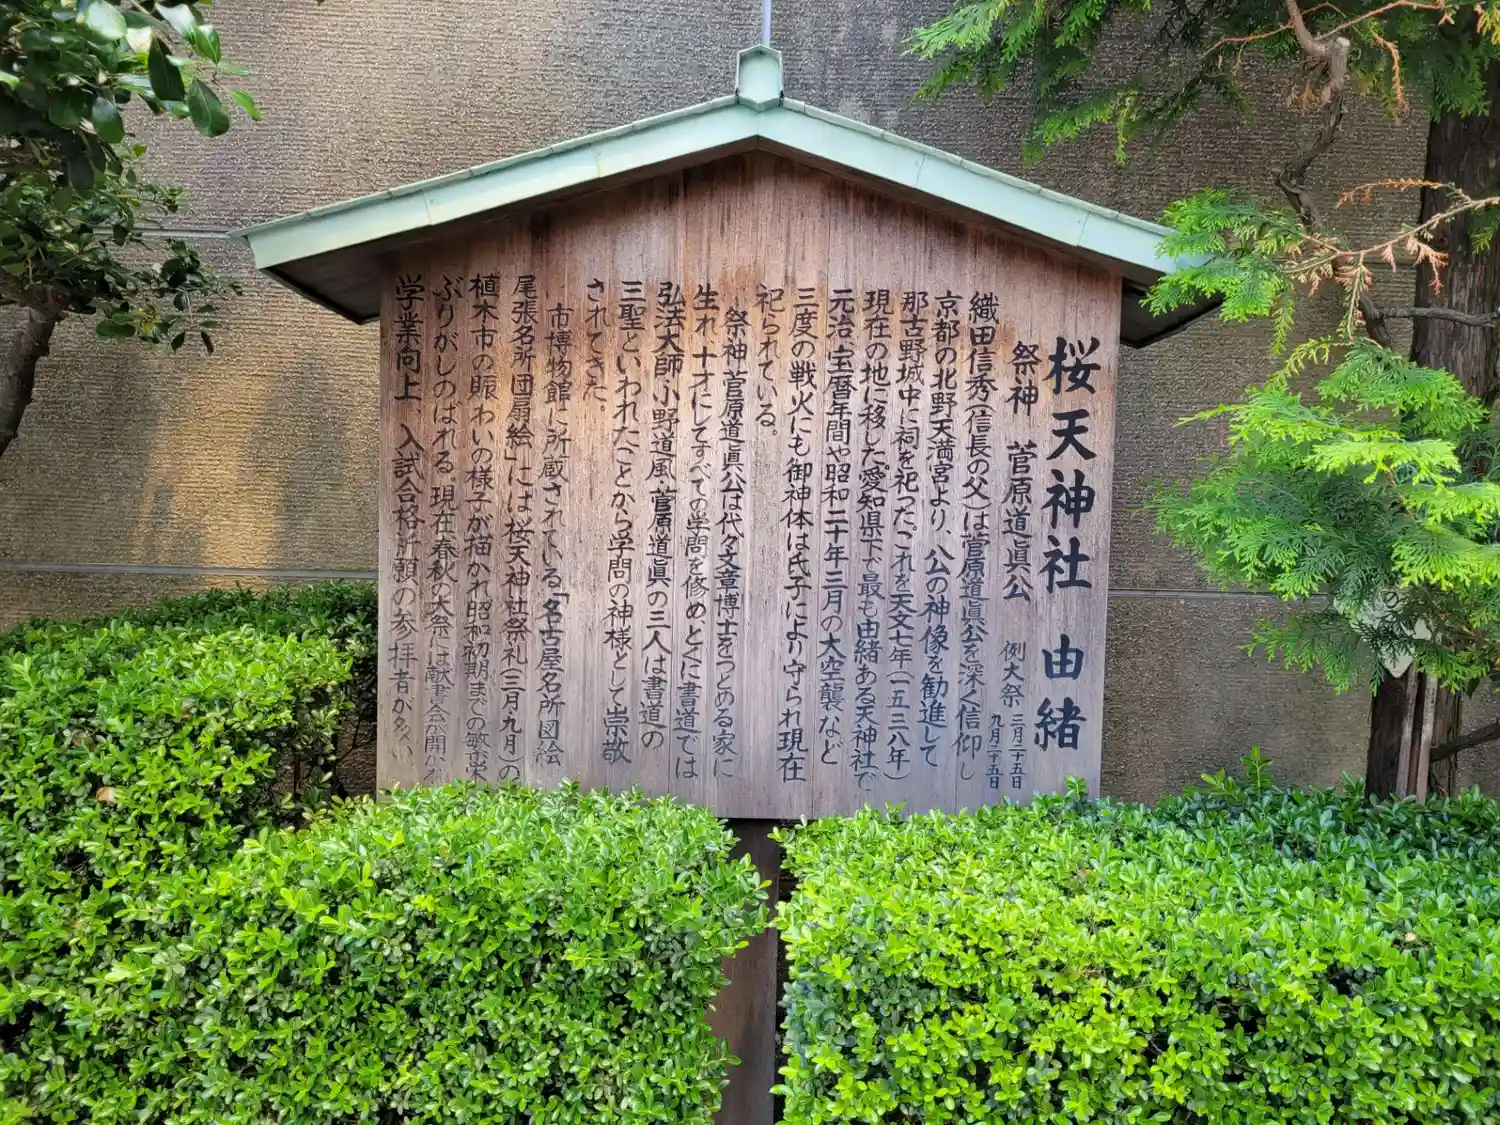 桜天神社　由緒
祭神　菅原道眞公　例大祭　二月二十五日
九月二十五日
織田信秀(信長の父)は菅原道眞公を深く信仰し
京都の北野天満宮より、公の神像を勧進して
那古野城中に祠を祀った。これを天文七年(一五三八年)
現在の地に移した。愛知県下で最も由緒ある天神社で
元治、宝暦年間や昭和二十年三月の大空襲など
三度の戦火にも御神体は氏子により守られ現在
祀られている。
祭神菅原道眞公は代々文章博士をつとめる家に
生れ、十才にしてすべての学問を修め、とくに書道では
弘法大師、小野道風、菅原道眞の三人は書道の
三聖といわれたことから学問の神様として崇敬
されてきた。
市博物館に所蔵されている「名古屋名所図絵
尾張名所団扇絵」には桜天神社祭礼(三月、九月)の
植木市の賑わいの様子が描かれ昭和初期までの敏
ぶりがしのばれる。現在春秋の大祭には献書会が開かれ
学業向上、入試合格祈願の参拝者が多い、